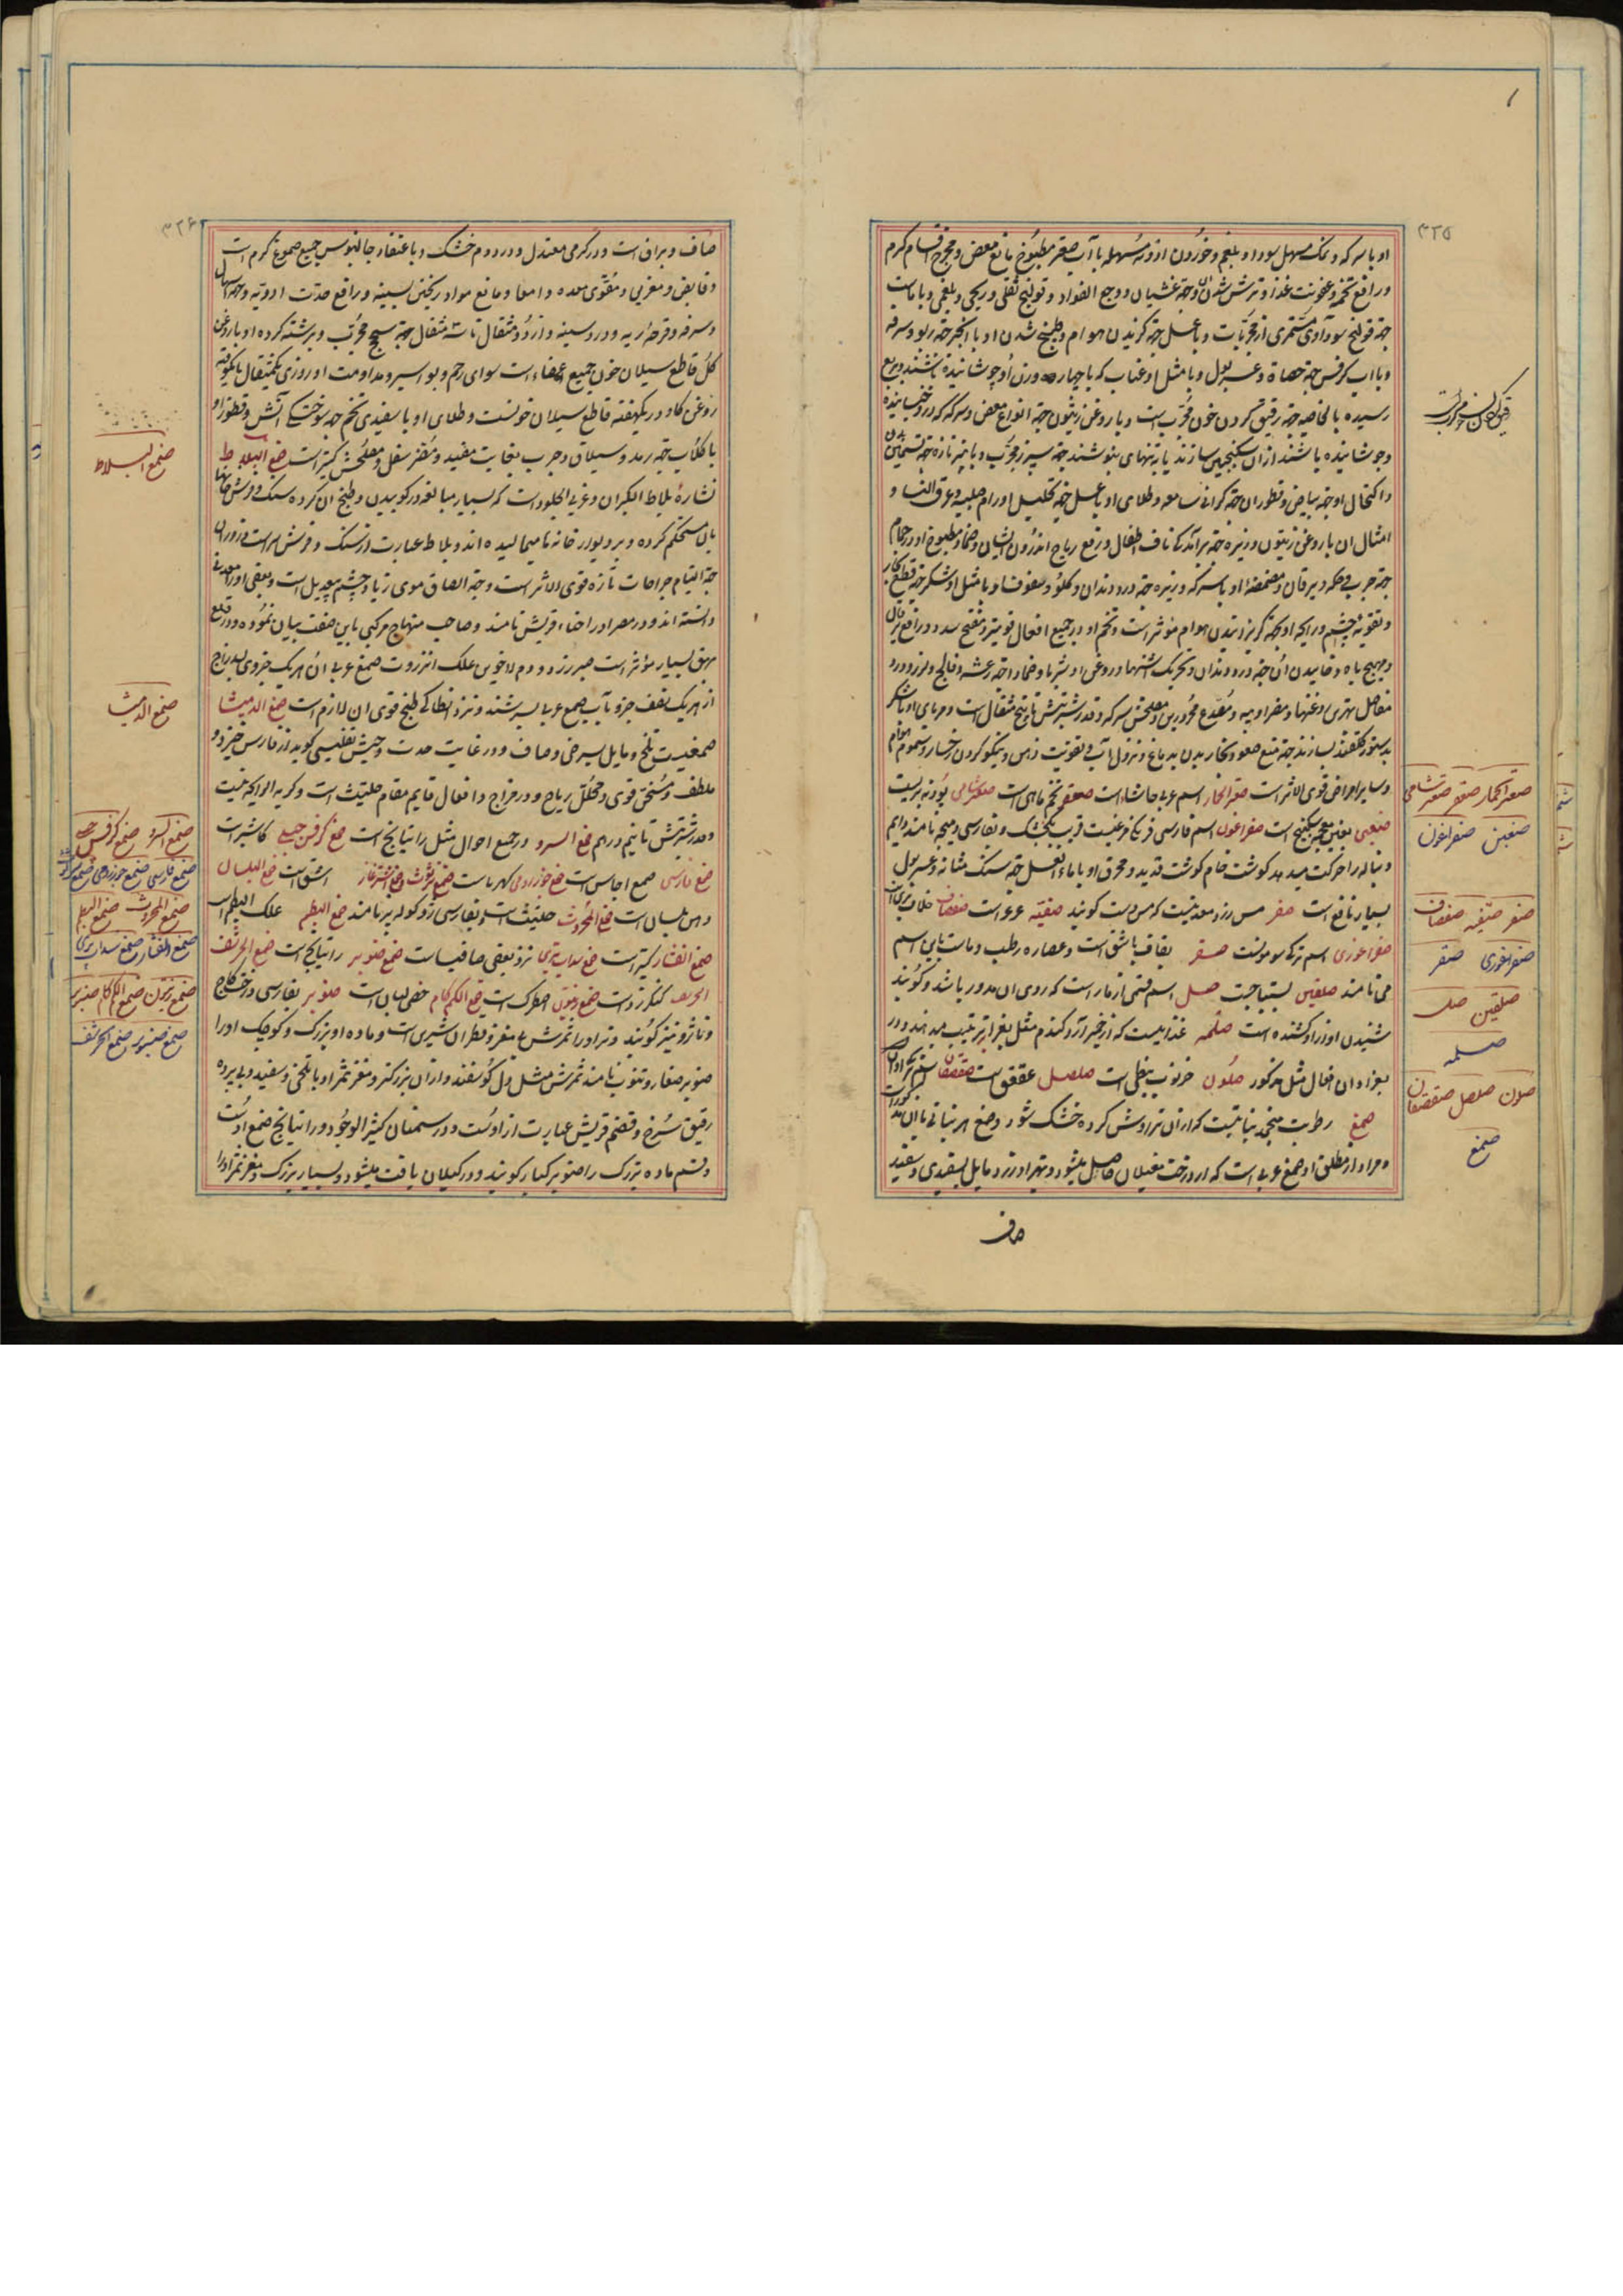 ۳۲۵
او با سرکه و نمک مسهل سودا و بلغم و خوردن ادویه مسهله با آب صعتر مطبوخ مانع مغص و مخرج اقسام کرم
و رافع تخمه و عفونت غذا و ترش شدن آن و جهة غشیان و وجع الفواد و قولنج ثفلی و ریحی و بلغمی و با ماست
جهة قولنج سوداوی مستمری از مجربات و با عسل جهة گزیدن هوام و طبیخ شدن او با انجیر جهة ربو و سرفه
و با آب کرفس جهة حصاة و عسر بول و با مثل او عناب که با چهار وزن او جوشانیده باشند بربع
رسیده بالخاصیه جهة رقیق کردن خون مجرب است و با روغن زیتون جهة انواع مغص و سرکه که در او خیسانیده
و جوشانیده باشند از آن سکنجبین سازند یا به تنهایی بنوشند جهة سپرز مجرب و با پنیر تازه جهة تسمین بدن
و اکتحال او جهة بیاض و قطور آن جهة گرانی سامعه و طلای او با عسل جهة تحلیل اورام صلبه و عرق النسا و
امثال آن با روغن زیتون و زیره جهة برآمدگی ناف اطفال و رفع ریاح اندرون ایشان و ضماد مطبوخ او در حمام
جهة جرب و حکه و یرقان و مضمضه او با سرکه و زیره جهة درد دندان و گلو و سعوف او با مثل او شکر جهة قطع بخار
و تقویة چشم و رایحه او جهة گریزانیدن هوام موثر است و تخم او در جمیع افعال قویتر و مفتح سدد و رافع یرقان
و مهیج باه و خاییدن آن جهة درد دندان و تحریک اشتها و روغن او شربا و ضمادا جهة رعشه و فالج و لرز و درد
مفاصل بهترین روغنها و مضر اریه و مصدع محرورین و مصلحش سرکه و قدر شربتش تا پنج مثقال است و مربای او با شکر
بدستور گلقند بسازند جهة منع صعود بخار بدن بدماغ و نزول آب و تقویت ذهن و نیکو کردن رخسار و سموم هوام
و سایر امراض قوی الاثر است صعتر الحمار اسم عربی حاشا است صعفر تخم ماهی است صعتر شامی پودنه بریست
صغبین بغین معجمه سکبینج است صفراغون اسم فارسی فرنگی مرغیست قریب بگنجشک و بفارسی دمیچه نامند دایم
دنباله را حرکت میدهد گوشت خام گوشت قدید و محرق او با ماء العسل جهة سنک مثانه و عسر بول
بسیار نافع است صفر مس زرد معدنیست که مس دست گویند صفینه عرعر است صفصاف خلاف بری است
صفراغوری اسم ترکی سومولست صقر بقاف باشق است و عصاره رطب و ماست باین اسم
می نامند صلفین بستیاجست صل اسم قسمی از مار است که روی آن مدور باشد و گویند
شنیدن آواز او کشنده است صلمه غذاییست که از خمیر آرد گندم مثل بغرا ترتیب میدهند و در
بغرا و آن افعال مثل مذکور صلون خرنوب نبطی است صلصل عقعق است صفصفان
صمغ رطوبت منجمد نباتیست که از آن تراوش کرده خشک شود و صمغ هر نباتی با آن مذکور است
و مراد از مطلق او صمغ عربی است که از درخت مغیلان حاصل میشود و بهتر او زرد مایل بسفیدی و سفید
صاف
صعتر الحمار صعفر صعتر شامی
صغبین صفراغون
صفر صفینه صفصاف
صفراغوری صقر
صلفین صل
صلمه
صلون صلصل صفصفان
صمغ
۳۲۶
صاف و براق است و در گرمی معتدل و در دوم خشک و باعتقاد جالینوس جمیع صموغ گرم است
و قابض و مغری و مقوی معده و امعا و مانع مواد ریختن بسینه و رافع حدت ادویه و جهة اسهال
و سرفه و قرحه ریه و درد سینه و از دو مثقال تا سه مثقال جهة سحج مجرب و برشته کرده او با روغن
گل قاطع سیلان خون جمیع اعضاء است سوای رحم و بواسیر و مداومت او روزی یکمثقال با یکوقیه
روغن گاو در یکهفته قاطع سیلان خونست و طلای او با سفیدی تخم جهة سوختگی آتش و قطور او
با گلاب جهة رمد و سیلان و جرب بغایت مفید و مضر سفل و مصلحش کتیراست صمغ البلاط
نشاره بلاط البکران و غری الجلود است که بسیار مبالغه در کوبیدن و طبخ آن کرده سنک و فرش خانها
بآن مستحکم کرده و بر دیوار خانه ها میمالیده اند و بلاط عبارت از سنک و فرش سراست و ذرور آن
جهة التیام جراحات تازه قوی الاثر است و جهة الصاق موی زیاد چشم بیعدیل است و بعضی او را معدنی
دانسته اند و در مصر او را اخناء قریش نامند و صاحب منهاج مرکبی باین صفت بیان نموده و در قلع
بهق بسیار مؤثر است صبر زرد و دم الاخوین علک انزروت صمغ عربی از هر یک جزوی کندر زاج
از هر یک نصف جزو بآب صمغ عربی بسرشند و نزد انطاکی طبخ قوی آن لازم است صمغ الدامیثا
صمغیست تلخ و مایل بسرخی و صاف و در غایت حدت و حبیش تفلیسی گوید از فارس خیزد و
ملطف و مسخن قوی و محلل ریاح و در خراج و افعال قایم مقام حلتیت است و کریه الرایحه نیست
و قدر شربتش تا نیم درهم صمغ السرو در جمیع احوال مثل راتیانج است صمغ کرفس جبلی کاشیر است
صمغ فارسی صمغ اجاص است صمغ جوز رومی کهرباست صمغ اشترغاز اشق است صمغ البلسان
دهن بلسان است صمغ المحروث حلتیت است و بفارسی ژد کوله پر نامند صمغ البطم علک البطم است
صمغ القتاد کتیراست صمغ سداب بری نزد بعضی صافیاست صمغ صنوبر راتیانج است صمغ الحرشف
کنکرزد است صمغ زیتون اصطرک است صمغ الکمکام حصی لبان است صنوبر بفارسی درخت کاج
و ناژو نیز گویند و نر او را ثمرش بی مغز و قطران شیری است و ماده او بزرک و کوچک او را
صنوبر صغار و تنوب نامند ثمرش مثل دل گوسفند و از آن بزرکتر و مغز ثمر او با تلخی و سفید و بی پرده
رقیق سرخ و قضم قریش عبارت از اوست و در سمنان کثیر الوجود و راتیانج صمغ اوست
و قسم ماده بزرک را صنوبر کبار گویند و در گیلان یافت میشود و بسیار بزرک و مغز ثمر او را
صمغ البلاط
صمغ الدامیثا
صمغ السرو صمغ کرفس جبلی
صمغ فارسی صمغ جوز رومی
صمغ المحروث صمغ البطم
صمغ القتاد صمغ سداب بری
صمغ زیتون صمغ الکمکام صنوبر
صمغ صنوبر صمغ الحرشف